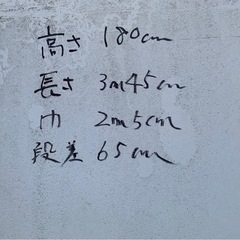 高さ 180cm
長さ 3m45cm
巾 2m5cm
段差 65cm